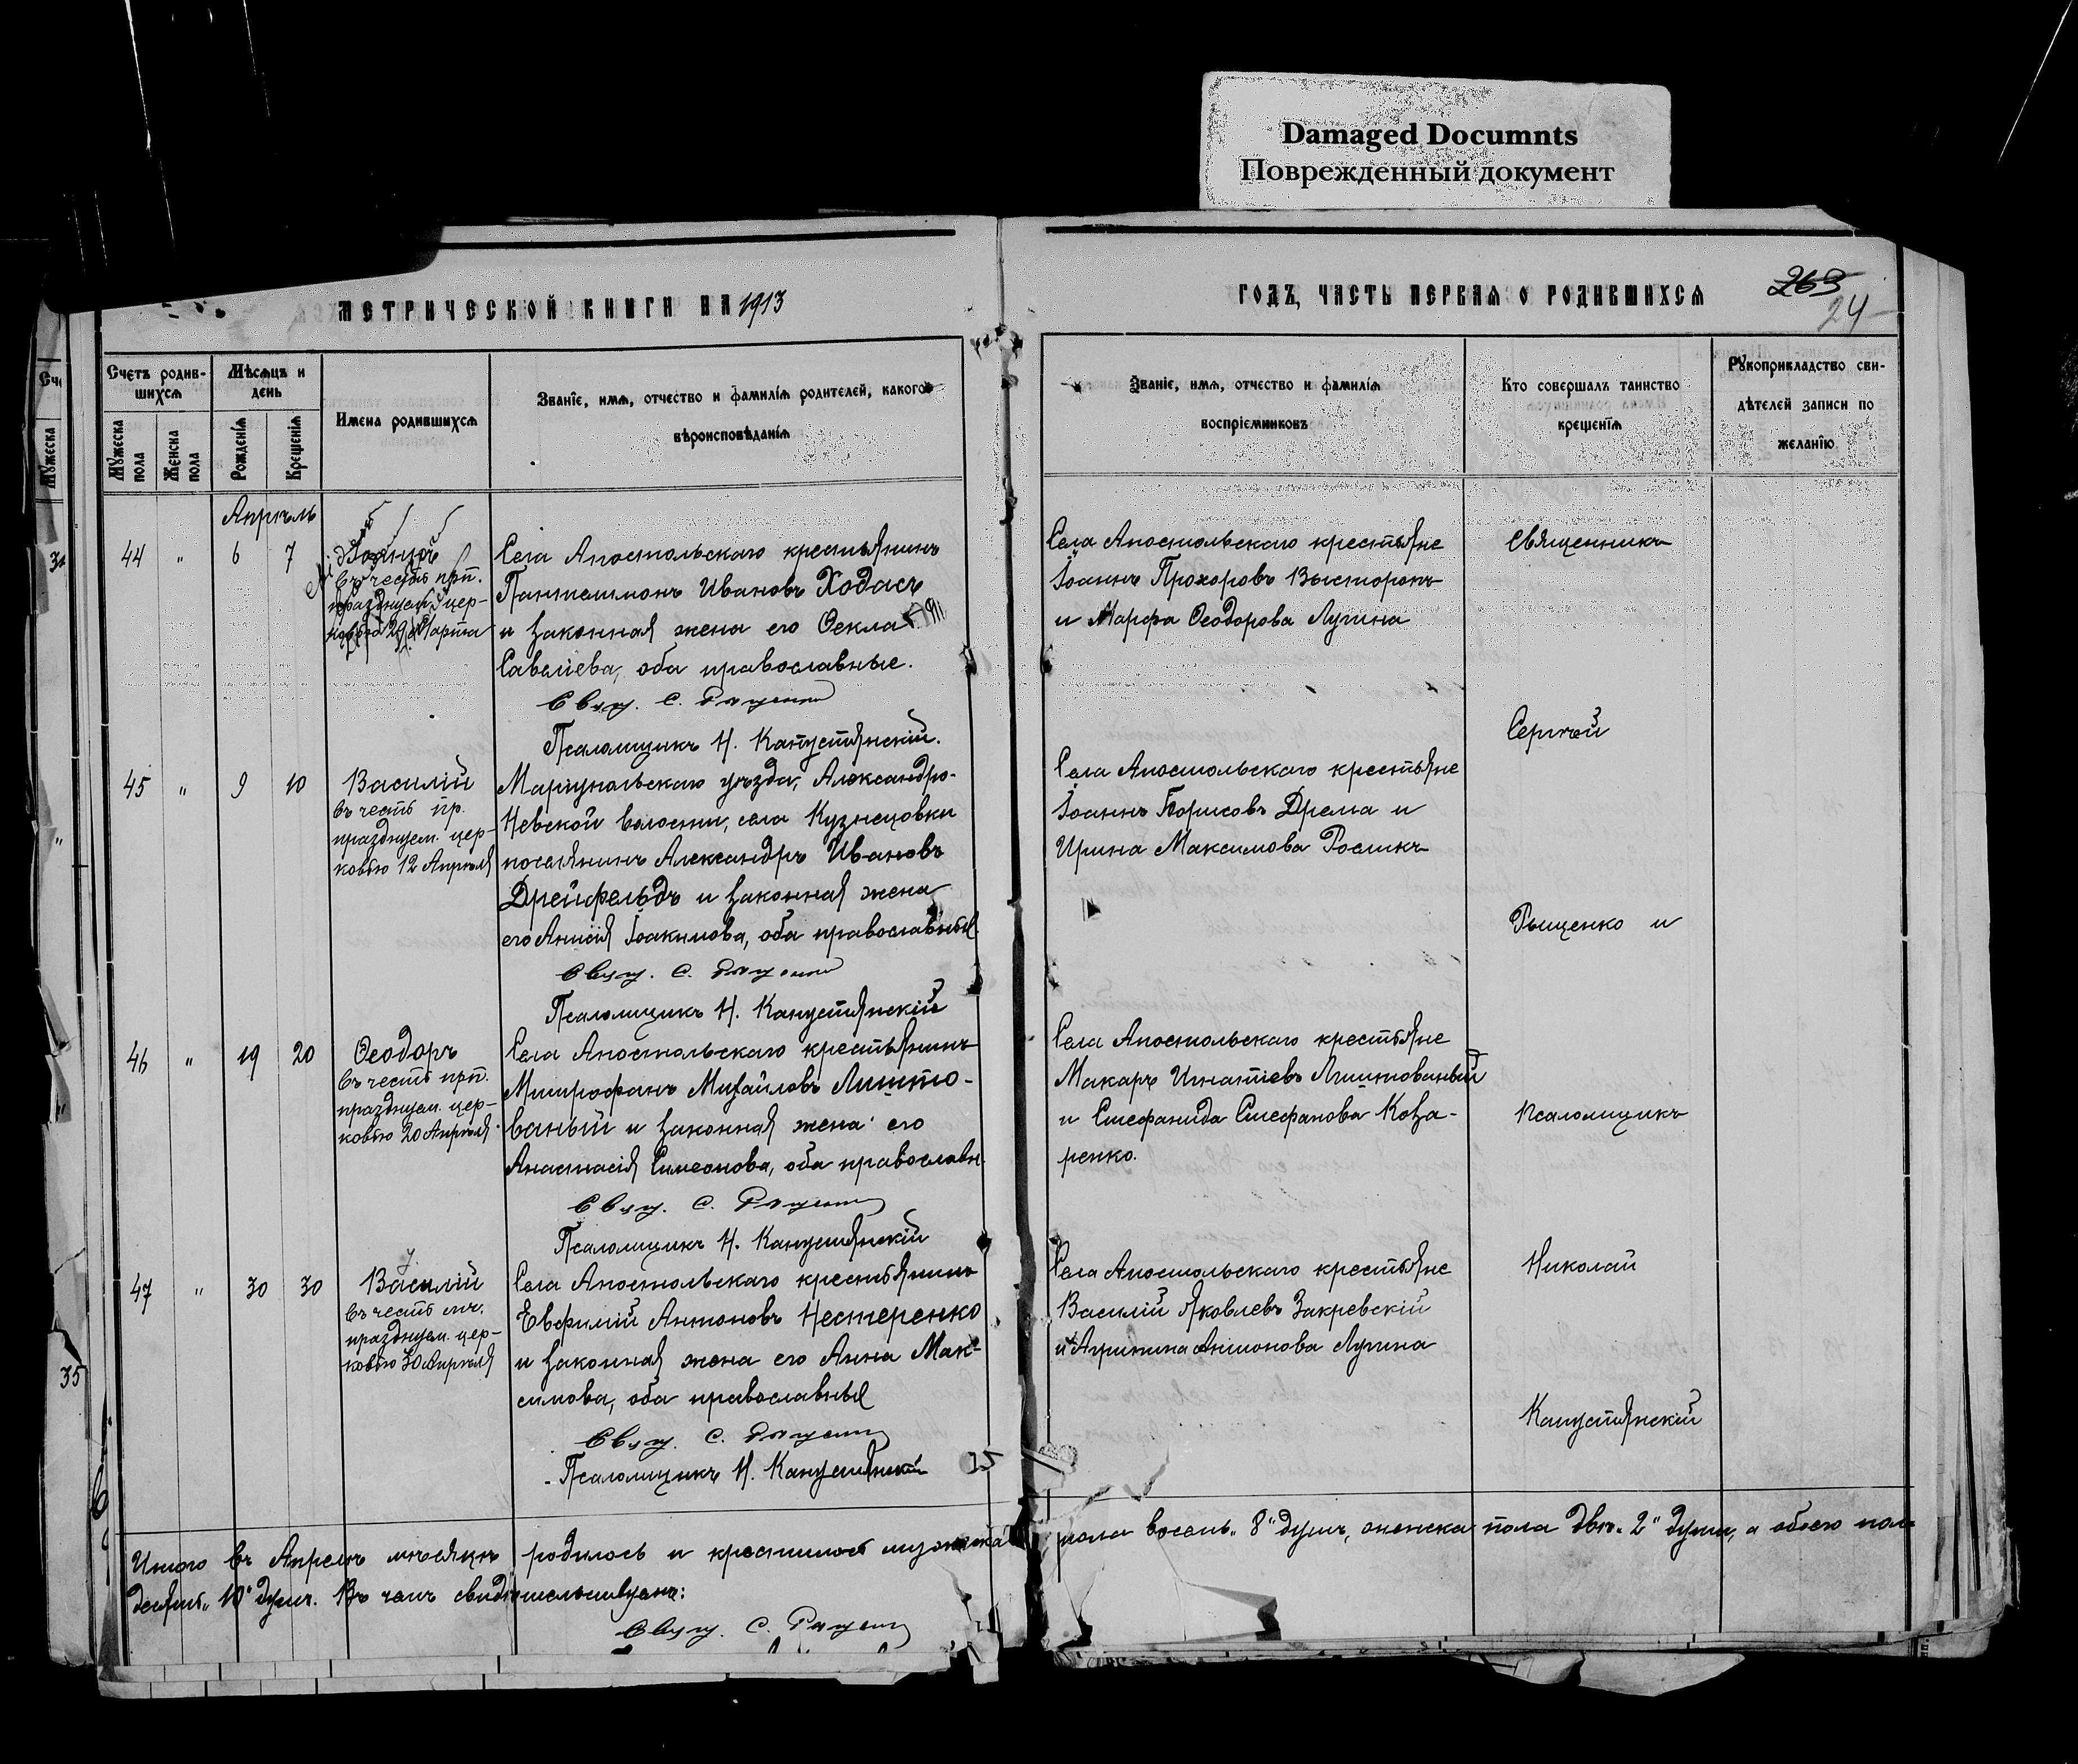 Damaged Documnts
Поврежденный документ
МЕТРИЧЕСКОЙ КНИГИ НА 1913
ГОДЪ, ЧАСТЬ ПЕРВАЯ О РОДИВШИХСЯ
263
24
Счетъ родив-
шихся
Мѣсяцъ и
день
Мужеска
пола
Женска
пола
Рожденія
Крещенія
Имена родившихся
Званіе, имя, отчество и фамилія родителей, какого
вѣроисповѣданія
Званіе, имя, отчество и фамилія
воспріемниковъ
Кто совершалъ таинство
крещенія
Рукоприкладство сви-
дѣтелей записи по
желанію
Апрѣль
44 " 6 7
въ честь прп.
празднуем. цер-
ковью 29 Марта
Села Апостольскаго крестьянинъ
Пантелимонъ Ивановъ Ходасъ
и законная жена его Ѳекла
Савелiева, оба православные.
Свящ. С. Рященко
Псаломщикъ Н. Капустянскій.
Села Апостольскаго крестьяне
Іоаннъ Прохоровъ Высторопъ
и Марфа Ѳеодорова Лугина
45 " 9 10
Василій
въ честь пр.
празднуем. цер-
ковью 12 Апрѣля
Маріупольскаго уѣзда, Александро-
Невской волости, села Кузнецовки
поселянинъ Александръ Ивановъ
Дрейфельдъ и законная жена
его Анисія Іоакимова, оба православныя.
Свящ. С. Рященко
Псаломщикъ Н. Капустянскій
Села Апостольскаго крестьяне
Іоаннъ Борисовъ Дрема и
Ирина Максимова Рослик
46 " 19 20
Ѳеодоръ
въ честь прп.
празднуем. цер-
ковью 20 Апрѣля.
Села Апостольскаго крестьянинъ
Митрофанъ Михайловъ Лишто-
ваный и законная жена его
Анастасія Симеонова, оба православн.
Свящ. С. Рященко
Псаломщикъ Н. Капустянскій
Села Апостольскаго крестьяне
Макаръ Игнатіевъ Лиштованый
и Стефанида Стефанова Коза-
ренко.
47 " 30 30
Василій
въ честь мч.
празднуем. цер-
ковью 30 Апрѣля
Села Апостольскаго крестьянинъ
Евфимій Антоновъ Нестеренко
и законная жена его Анна Мак-
симова, оба православныя
Свящ. С. Рященко
Псаломщикъ Н. Капустянскій
Села Апостольскаго крестьяне
Василій Яковлевъ Закревскій
и Агрипина Антонова Лугина
Священникъ
Сергѣй
Рященко и
Псаломщикъ
Николай
Капустянскій
35
Итого въ Апрелѣ мѣсяцѣ родилось и крестилось мужска пола восемь „8" душъ, женска пола двѣ „2" души, а обоего пола
десять „10" душъ. Въ чемъ свидѣтельствуемъ:
Свящ. С. Рященко